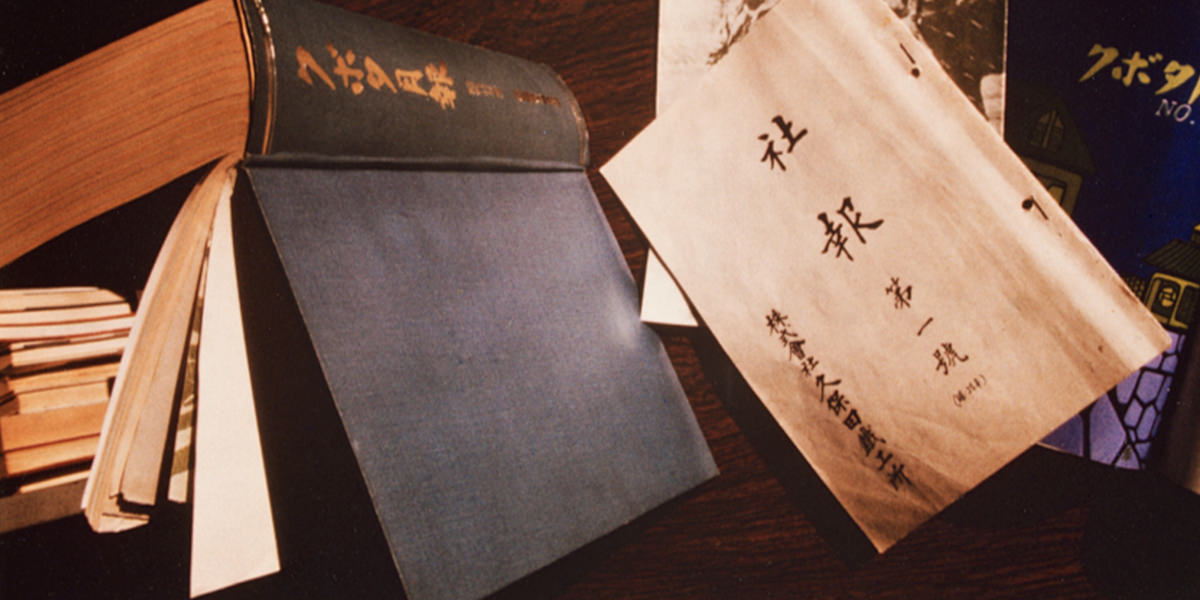 クボタ月報
社報
第一號
株式會社久保田鐵工所
クボタ
NO.